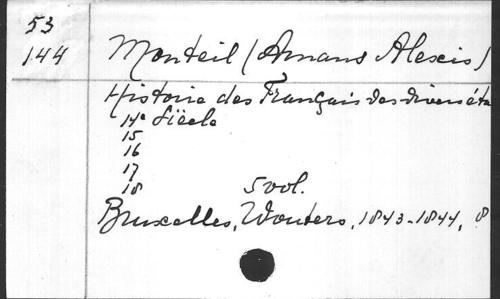 53
144
Monteil (Amans Alexis)
Histoire des Français des divers éta
14e Siècle
15
16
17
18 5 vol.
Bruxelles, Wouters, 1843-1844, 8